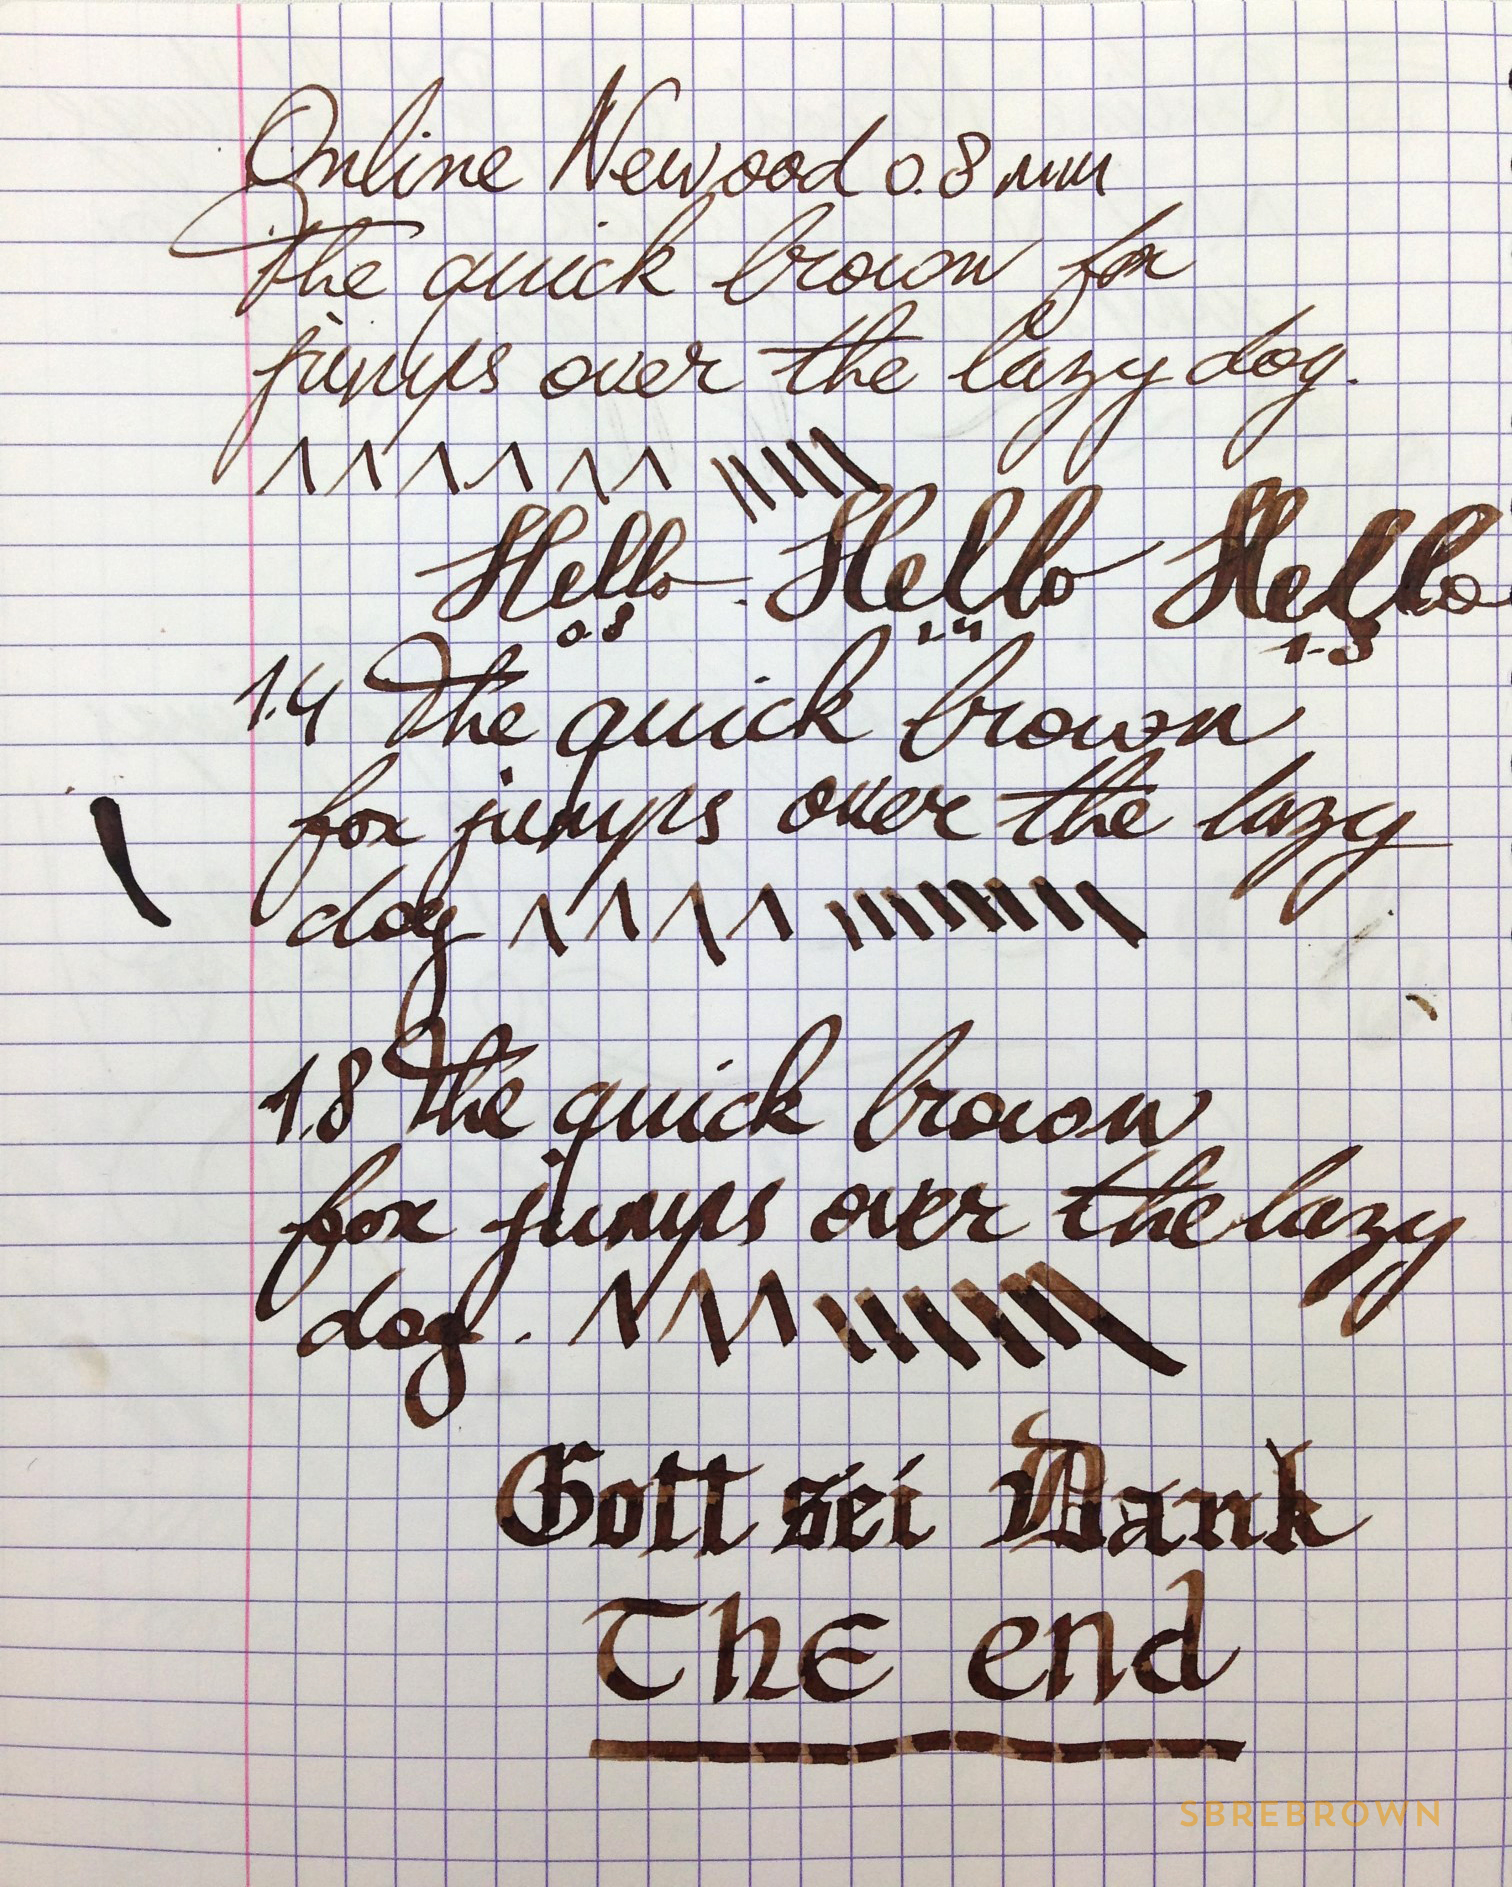 Online Newood 0.8 mm
The quick brown fox
jumps over the lazy dog.
Hello Hello Hello
0.8 1.4 1.8
1.4 The quick brown
fox jumps over the lazy
dog
1.8 The quick brown
fox jumps over the lazy
dog.
Gott sei Dank
The end
SBREBROWN